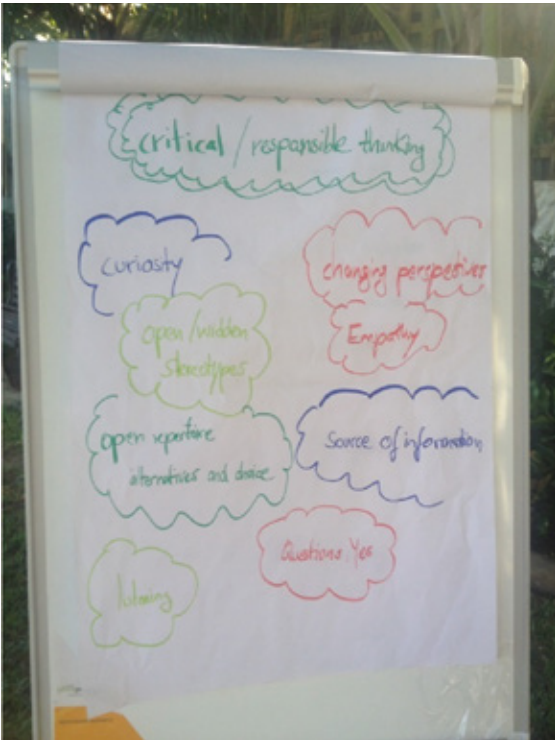 critical / responsible thinking
curiosity
changing perspectives
open / hidden
stereotypes
Empathy
open repertoire
alternatives and choice
Source of information
Questions: Yes
listening